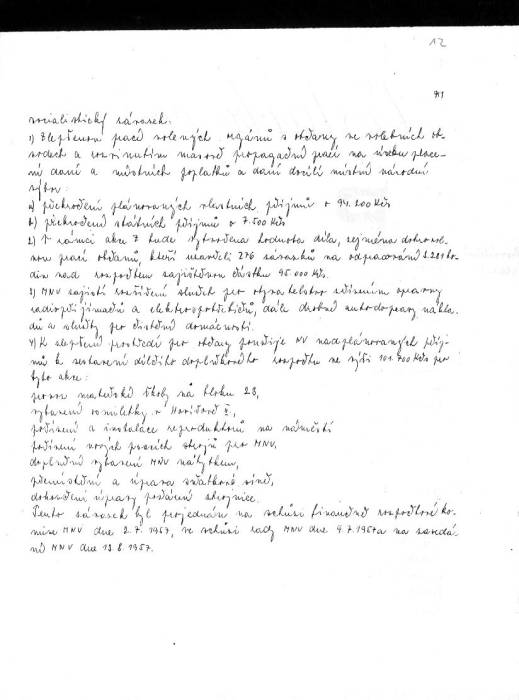 12
socialistický závazek:
1) Zlepšenou prací volených orgánů s občany ve volebních ob-
vodech a rozvinutím masově propagační práci na úseku place-
ní daní a místních poplatků a daní docílí místní národní
výbor:
a) překročení plánovaných vlastních příjmů o 94.200 Kčs
b) překročení státních příjmů o 7.500 Kčs
2) V rámci akce Z bude vytvořena hodnota díla, zejména dobrovol-
nou prací občanů, kteří uzavřeli 276 závazků na odpracování ho-
din nad rozpočtem zajištěnou částku 95.000 Kčs.
3) MNV zajistí rozšíření služeb pro obyvatelstvo zřízením opravny
radiopřijímačů a elektrospotřebičů, dále drobné autodopravy nákla-
dů a služby pro čištění domácností.
4) K zlepšení prostředí pro občany použije NV nadplánovaných příj-
mů k sestavení dílčího doplňkového rozpočtu ve výši 101.700 Kčs pro
tyto akce:
provoz mateřské školy na bloku 28,
vybavení v
pořízení a instalace reproduktorů na náměstí
pořízení nových psacích strojů pro MNV,
doplnění vybavení MNV nábytkem,
přemístění a úprava svatební síně,
dokončení úpravy požární zbrojnice.
Tento závazek byl projednán na schůzi finančně rozpočtové ko-
mise MNV dne 2.7.1957, ve schůzi rady MNV dne 9.7.1957 a na zasedá-
ní MNV dne 13.8.1957.